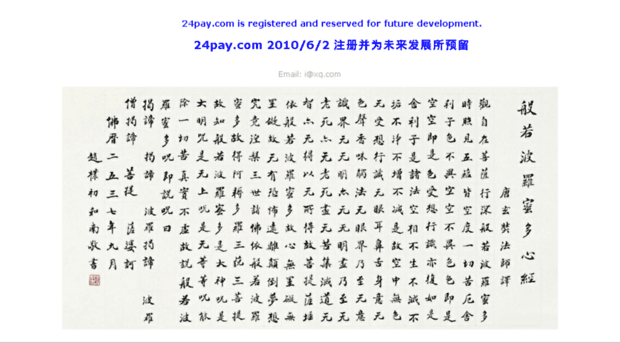 24pay.com is registered and reserved for future development.
24pay.com 2010/6/2 注册并为未来发展所预留
Email: i@xq.com
般若波羅蜜多心經
唐玄奘法師譯
觀自在菩薩行深般若波羅蜜多
時照見五蘊皆空度一切苦厄舍
利子色不異空空不異色色即是
空空即是色受想行識亦復如是
舍利子是諸法空相不生不滅不
垢不淨不增不減是故空中無色
无受想行識无眼耳鼻舌身意无
色聲香味觸法无眼界乃至无意
識界无无明亦无无明盡乃至无
老死亦无老死盡无苦集滅道无
智亦无得以无所得故菩提薩埵
依般若波羅蜜多故心無罣礙無
罣礙故无有恐怖遠離顛倒夢想
究竟涅槃三世諸佛依般若波羅
蜜多故得阿耨多羅三藐三菩提
故知般若波羅蜜多是大神咒是
大明咒是无上咒是无等等咒能
除一切苦真實不虛故說般若波
羅蜜多咒即說咒曰
揭諦 揭諦 波羅揭諦 波羅
僧揭諦 菩提 薩婆訶
佛曆二五三七年九月
趙樸初和南敬書